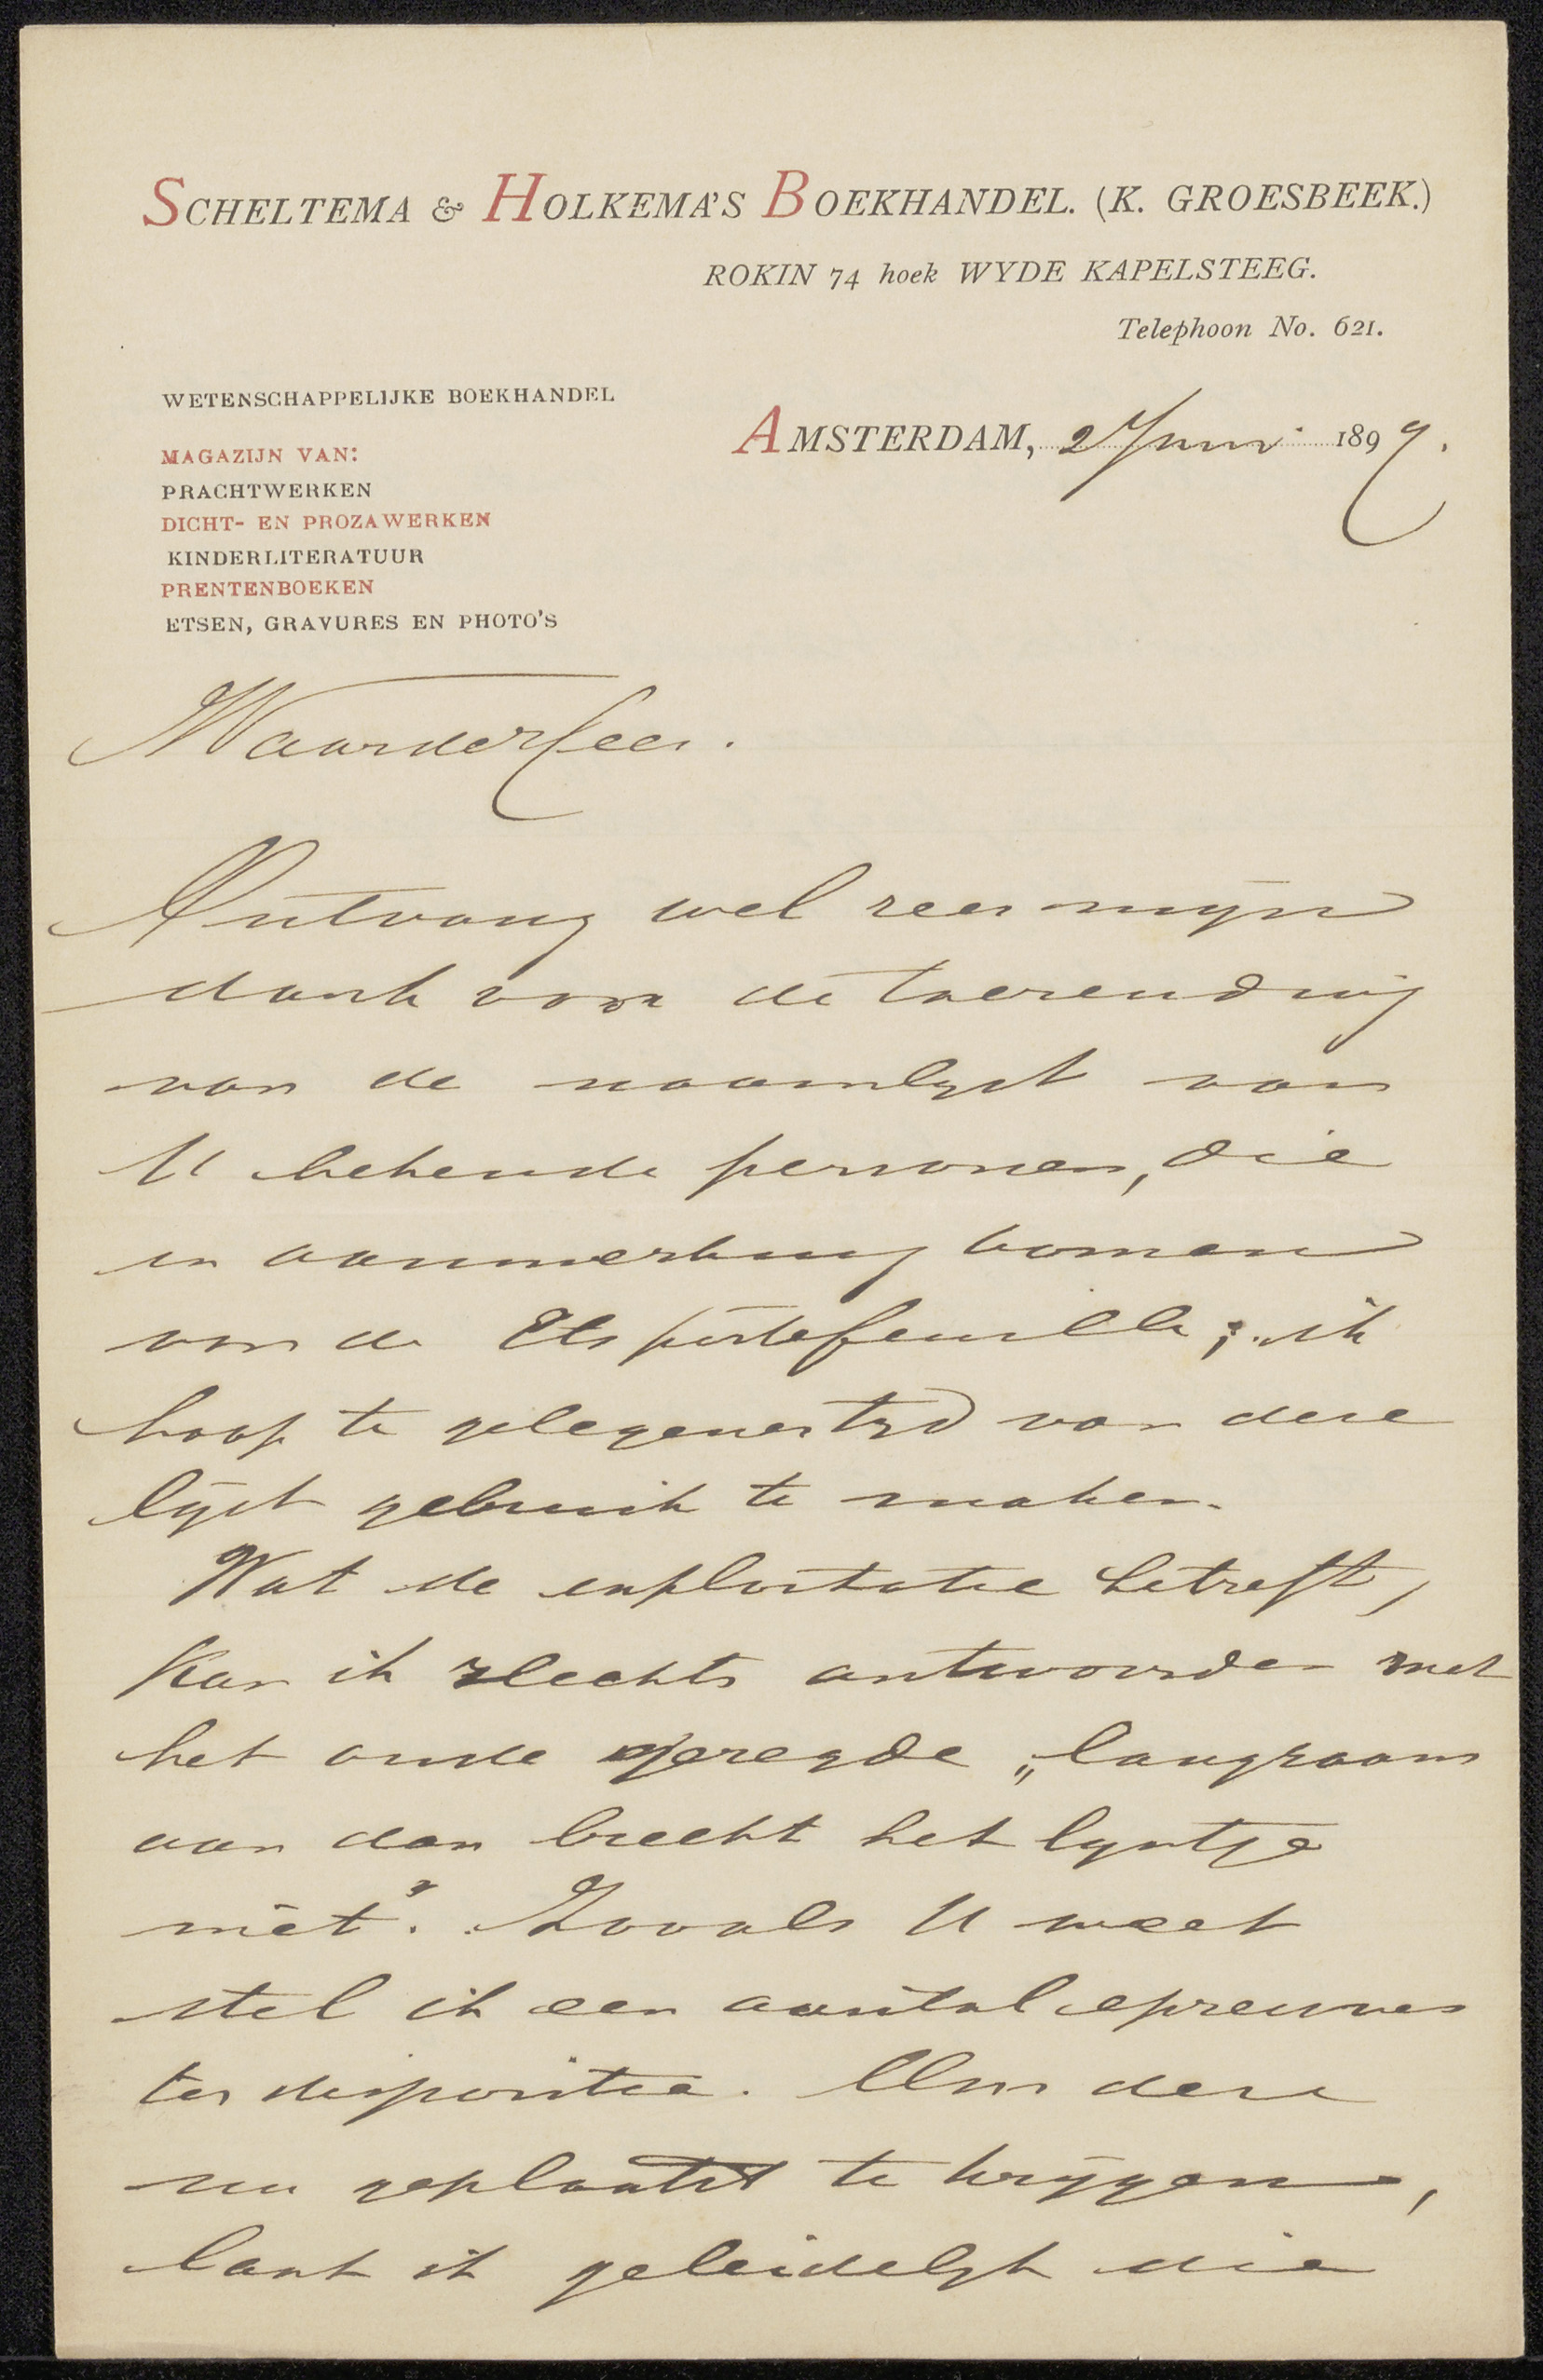 SCHELTEMA & HOLKEMA'S BOEKHANDEL. (K. GROESBEEK.)
ROKIN 74 hoek WYDE KAPELSTEEG.
Telephoon No. 621.
WETENSCHAPPELIJKE BOEKHANDEL
AMSTERDAM, 2 Juni 1899.
MAGAZIJN VAN:
PRACHTWERKEN
DICHT- EN PROZAWERKEN
KINDERLITERATUUR
PRENTENBOEKEN
ETSEN, GRAVURES EN PHOTO'S
Waarde Heer.
Ontvang wel zeer mijn
dank voor de toezending
van de naamlyst van
U bekende personen, die
in aanmerking komen
voor de Ets portefeuille; ik
hoop te gelegenertyd van deze
lijst gebruik te maken.
Wat de exploitatie betreft,
kan ik slechts antwoorden met
het oude gezegde „langzaam
aan dan breekt het lyntje
niet". Zooals U weet
stel ik een aantal epreuves
ter dispositie. Om deze
nu geplaatst te krijgen,
laat ik geleidelyk die